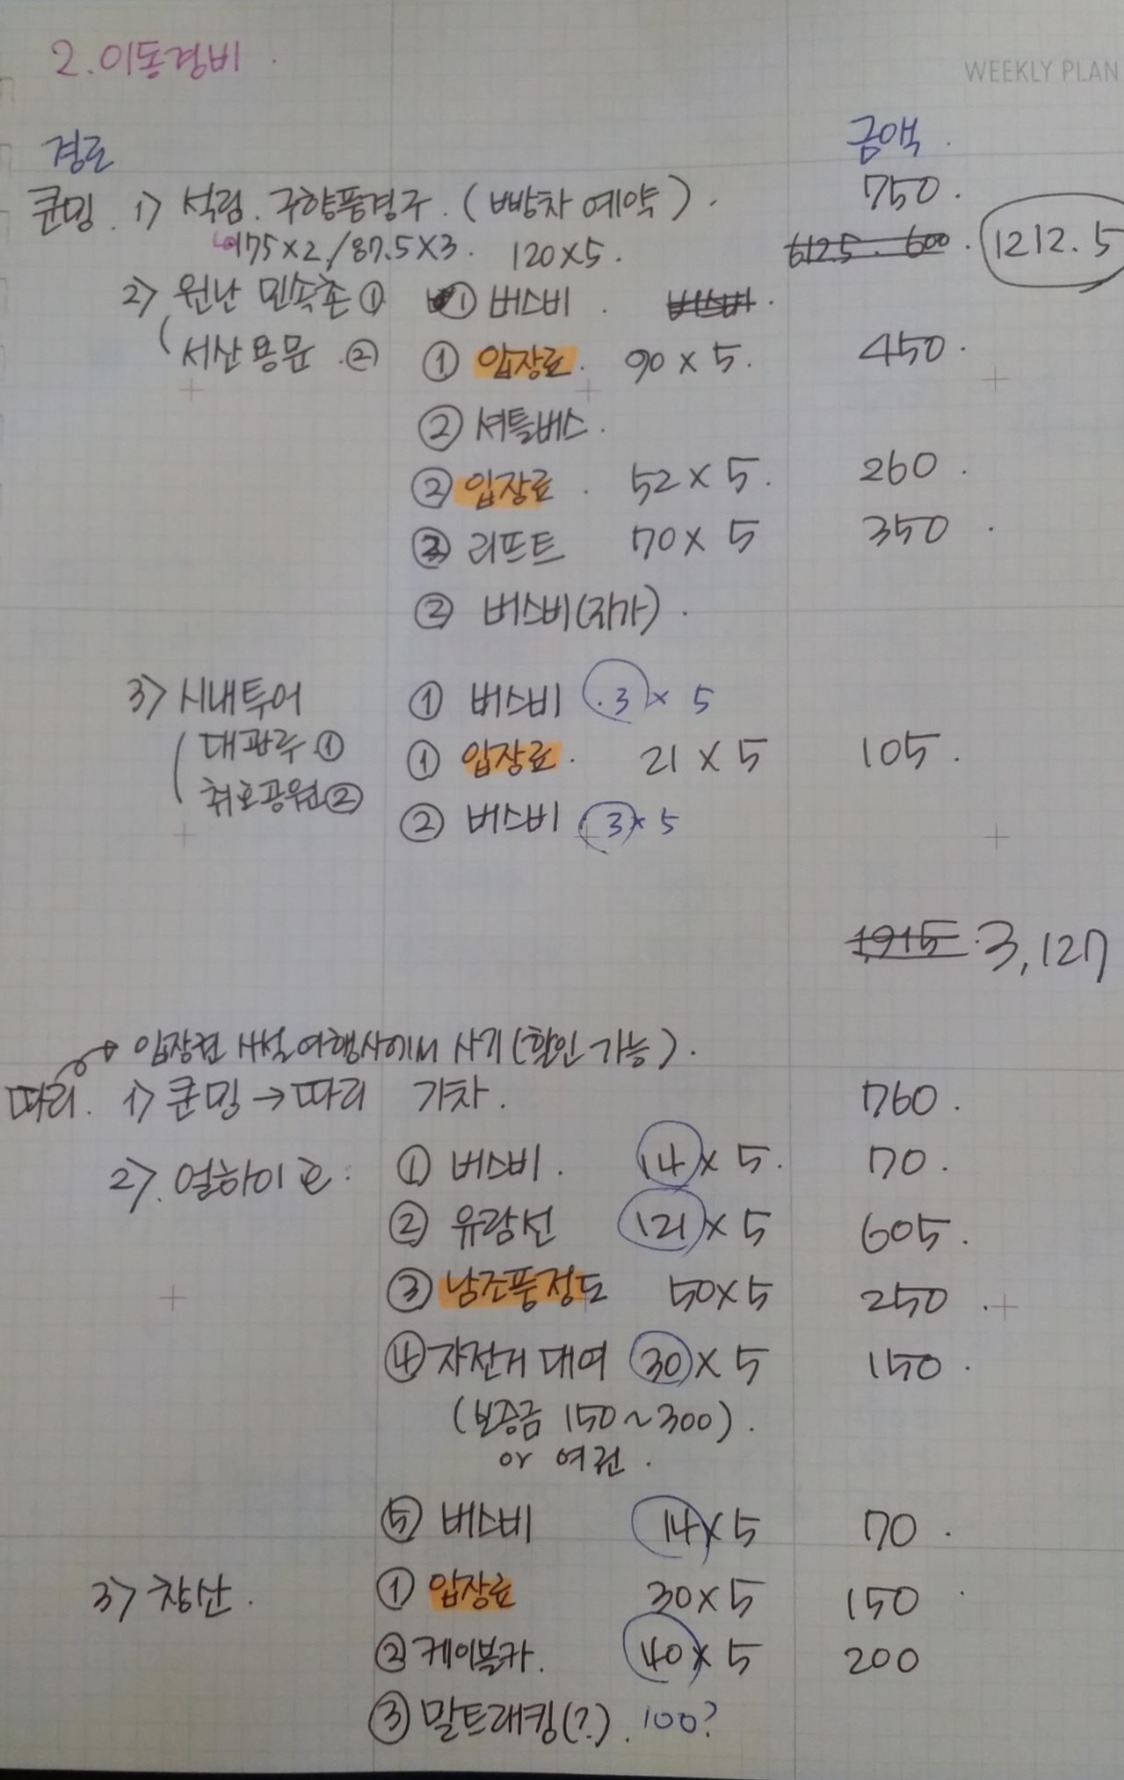 2. 이동경비
WEEKLY PLAN
경로 금액
쿤밍. 1) 석림. 구향풍경구. (빵차 예약). 750.
175x2 / 87.5x3. 120x5. 612.5. 600. 1212.5
2) 원난 민속촌 ① ① 버스비. 버스비.
서산용문. ② ① 입장료. 90 x 5. 450.
② 셔틀버스.
② 입장료. 52 x 5. 260.
② 리프트 70 x 5 350.
② 버스비(자가).
3) 시내투어 ① 버스비 3 x 5
대관루 ① ① 입장료. 21 x 5 105.
취호공원 ② ② 버스비 3 x 5
1,915 3,127
입장권 사설 여행사에서 사기(할인 가능).
따리. 1) 쿤밍 → 따리 기차. 760.
2). 얼하이호: ① 버스비. 14 x 5. 70.
② 유람선 121 x 5 605.
③ 남조풍정도 50 x 5 250.
④ 자전거 대여 30 x 5 150.
(보증금 150~300).
or 여권.
⑤ 버스비 14 x 5 70.
3) 창산. ① 입장료 30 x 5 150
② 케이블카. 40 x 5 200
③ 말트래킹(?). 100?